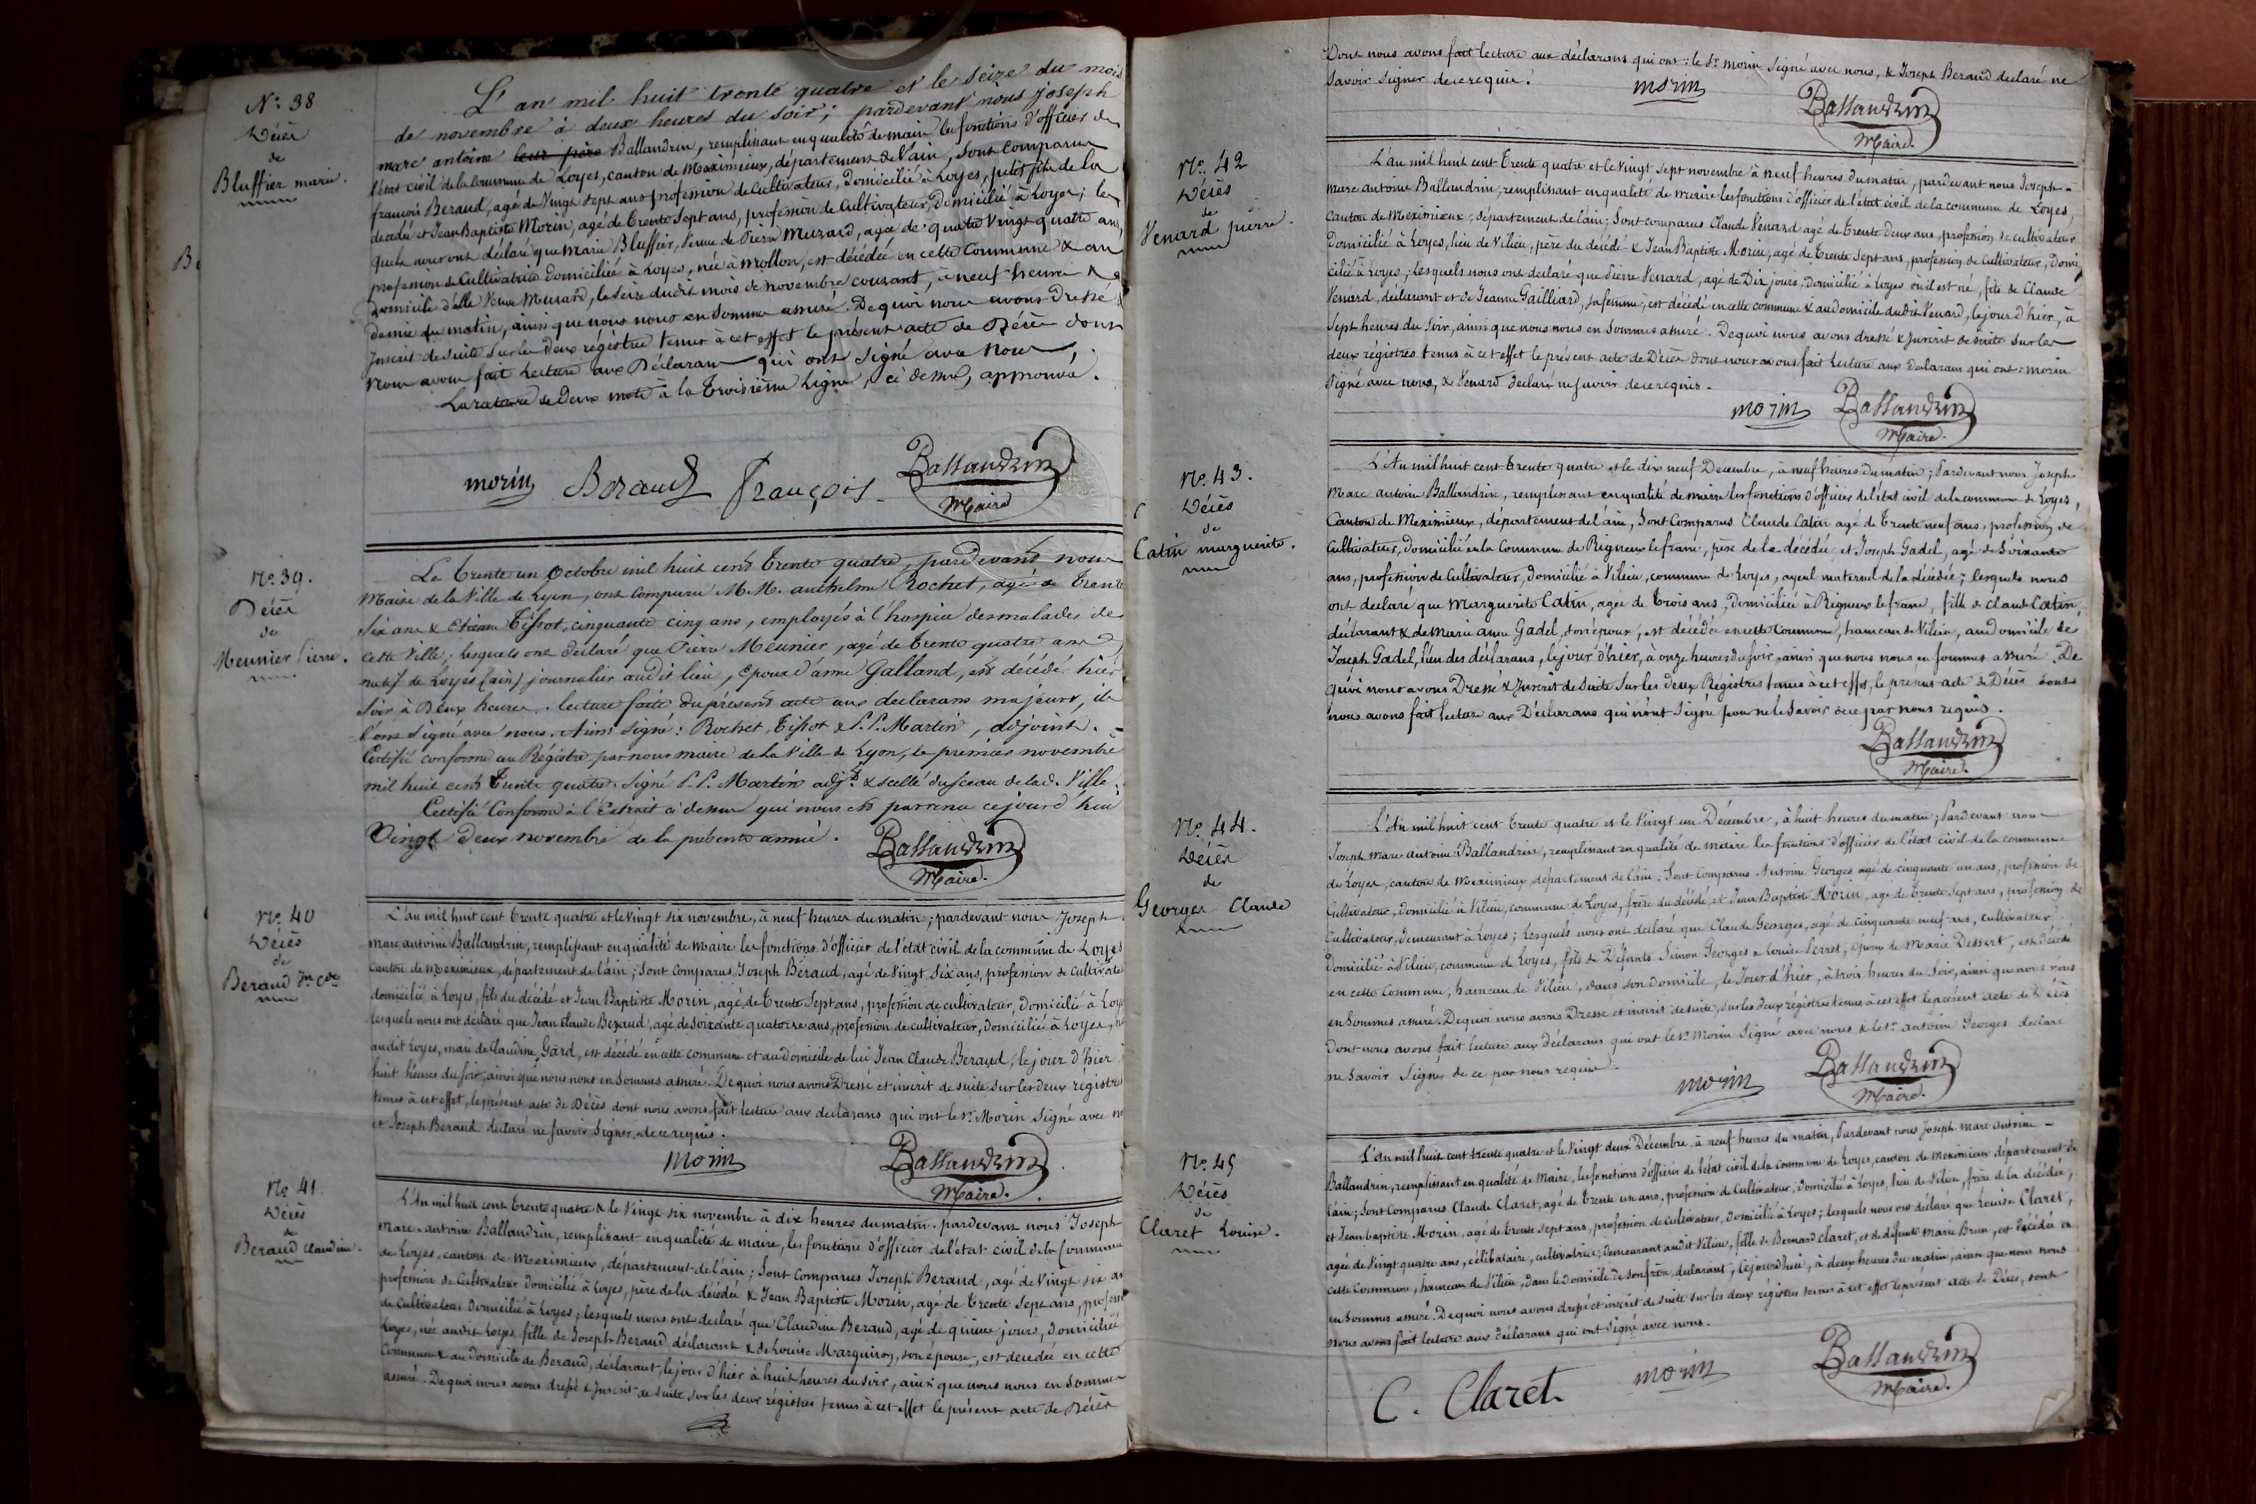 N.° 38
Décès
de
Bluffier marie.
L'an mil huit trente quatre et le seize du mois
de novembre à deux heures du soir; pardevant nous joseph
marc antoine Ballandrin, remplissant en qualité de maire les fonctions d'officier de
l'état civil de la commune de Loyes, canton de Meximieux, département de l'ain, sont comparus
françois Beraud, agé de vingt sept ans profession de cultivateur, domicilié à Loyes, petit fils de la
décédée et Jean Baptiste Morin, agé de trente sept ans, profession de cultivateur, domicilié à Loyes; les
quels nous ont déclaré que Marie Bluffier, veuve de Pierre Muzard, agée de quatre vingt quatre ans,
profession de cultivatrice domiciliée à Loyes, née à Mollon, est décédée en cette commune & au
domicile d'elle veuve Muzard, le seize dudit mois de novembre courant, à neuf heures &
demie du matin, ainsi que nous nous en sommes assuré. De quoi nous avons dressé &
inscrit de suite sur les deux régistres tenus à cet effet le présent acte de Décès dont
nous avons fait lecture aux Déclarans qui ont signé avec nous.
La rature de deux mots à la troisième ligne, ci dessus, approuvé.
morin Beraud françois Ballandrin
Maire
N.° 39.
Décès
de
Meunier Pierre.
Le trente un Octobre mil huit cent trente quatre, pardevant nous
Maire de la Ville de Lyon, ont comparu M.M. anthelme Rochet, agé de trente
six ans & Etienne Tissot, cinquante cinq ans, employés à l'hospice des malades de
cette Ville; lesquels ont déclaré que Pierre Meunier, agé de trente quatre ans,
natif de Loyes (ain) journalier audit lieu, Epoux d'anne Galland, est décédé hier
soir à deux heures. lecture faite du présent acte aux déclarans majeurs, ils
l'ont signé avec nous. Ainsi signé: Rochet, Tissot & P.P. Martin, adjoint.
Certifié conforme au Régistre, par nous maire de la Ville de Lyon, le premier novembre
mil huit cent trente quatre. Signé P.P. Martin adj.t & scellé du sceau de lad. Ville.
Certifié Conforme à l'Extrait ci dessus qui nous est parvenu cejourd'hui
Vingt deux novembre de la présente année.
Ballandrin
Maire.
N.° 40
Décès
de
Beraud Jn Cde
L'an mil huit cent trente quatre et le vingt six novembre, à neuf heures du matin; pardevant nous Joseph
Marc antoine Ballandrin, remplissant en qualité de Maire les fonctions d'officier de l'état civil de la commune de Loyes
canton de Meximieux, département de l'ain; sont comparus Joseph Béraud, agé de vingt six ans, profession de cultivate
domicilié à Loyes, fils du décédé et Jean Baptiste Morin, agé de trente sept ans, profession de cultivateur, domicilié à Loye
lesquels nous ont déclaré que Jean Claude Beraud, agé de soixante quatorze ans, profession de cultivateur, domicilié à Loyes, né
audit Loyes, mari de Claudine Gard, est décédé en cette commune et au domicile de lui Jean Claude Beraud, le jour d'hier
huit heures du soir, ainsi que nous nous en sommes assuré. De quoi nous avons Dressé et inscrit de suite sur les deux régistres
tenus à cet effet, le présent acte de Décès dont nous avons fait lecture aux déclarans qui ont le sr. Morin signé avec no
et Joseph Beraud déclaré ne savoir signer, de ce requis.
Morin Ballandrin
Maire.
N.° 41
Décès
de
Beraud Claudine.
L'An mil huit cent trente quatre & le vingt six novembre à dix heures du matin. pardevant nous Joseph
Marc-antoine Ballandrin, remplissant en qualité de maire, les fonctions d'officier de l'état civil de la Commune
de Loyes, canton de Meximieux, département de l'ain; sont comparus Joseph Beraud, agé de vingt six an
profession de Cultivateur domicilié à Loyes, père de la décédée & Jean Baptiste Morin, agé de trente sept ans, profess
de cultivateur domicilié à Loyes; lesquels nous ont déclaré que Claudine Beraud, agé de quinze jours, domiciliée
Loyes, née audit Loyes fille de Joseph Beraud déclarant & de Louise Marguiron, son épouse, est décédée en cette
commune & au domicile de Beraud, déclarant, le jour d'hier à huit heures du soir, ainsi que nous nous en sommes
assuré. De quoi nous avons dressé & inscrit de suite, sur les deux régistres tenus à cet effet le présent acte de Décès
Dont nous avons fait lecture aux déclarans qui ont: le Sr. morin signé avec nous, & Joseph Beraud déclaré ne
savoir signer de ce requis.
morin Ballandrin
Maire.
N.° 42
Décès
de
Venard pierre.
L'an mil huit cent trente quatre et le vingt sept novembre à neuf heures du matin, pardevant nous Joseph-
Marc antoine Ballandrin, remplissant en qualité de maire les fonctions d'officier de l'état civil de la commune de Loyes,
canton de Meximieux, département de l'ain; sont comparus Claude Venard agé de trente deux ans, profession de cultivateur
Domicilié à Loyes, lieu de Vilieu, père du décédé & Jean Baptiste Morin, agé de trente sept ans, profession de cultivateur, domi
cilié à Loyes; lesquels nous ont déclaré que Pierre Venard, agé de dix jours, domicilié à Loyes où il est né, fils de Claude
Venard, déclarant et de Jeanne Gailliard, sa femme, est décédé en cette commune & au domicile dudit Venard, le jour d'hier, à
sept heures du soir, ainsi que nous nous en sommes assuré. De quoi nous avons dressé & inscrit de suite sur les
deux régistres tenus à cet effet le présent acte de Décès dont nous avons fait lecture aux déclarans qui ont: morin
signé avec nous, & Venard déclaré ne savoir de ce requis.
morin Ballandrin
Maire.
N.° 43.
Décès
de
Catin marguerite.
L'An mil huit cent trente quatre et le dix neuf Décembre, à neuf heures du matin; Pardevant nous Joseph
Marc antoine Ballandrin, remplissant en qualité de maire les fonctions d'officier de l'état civil de la commune de Loyes,
Canton de Meximieux, département de l'ain, sont comparus Claude Catin agé de trente neuf ans, profession de
cultivateur, domicilié en la Commune de Rigneux le franc, père de la décédée et Joseph Gadel, agé de soixante
ans, profession de Cultivateur, domicilié à Vilieu, commune de Loyes, ayeul maternel de la décédée; lesquels nous
ont déclaré que Marguerite Catin, agée de trois ans, domiciliée à Rigneux le franc, fille de Claude Catin,
déclarant & de Marie anne Gadel, son épouse, est décédée en cette commune, hameau de Vilieu, au domicile de
Joseph Gadel, l'un des déclarans, le jour d'hier, à onze heures du soir, ainsi que nous nous en sommes assuré. De
quoi nous avons Dressé & inscrit de suite sur les deux Registres tenus à cet effet, le présent acte de Décès dont
nous avons fait lecture aux Déclarans qui n'ont signé pour ne le savoir de ce par nous requis.
Ballandrin
Maire.
N.° 44.
Décès
de
Georges Claude
L'An mil huit cent trente quatre et le vingt un Décembre, à huit heures du matin; Pardevant nous
Joseph Marc antoine Ballandrin, remplissant en qualité de maire les fonctions d'officier de l'état civil de la commune
de Loyes, canton de Meximieux, département de l'ain; sont comparus Antoine Georges agé de cinquante un ans, profession de
Cultivateur, domicilié à Vilieu, commune de Loyes, frère du décédé, et Jean Baptiste Morin, agé de trente sept ans, profession de
cultivateur, demeurant à Loyes; lesquels nous ont déclaré que Claude Georges, agé de cinquante neuf ans, cultivateur
domicilié à Vilieu, commune de Loyes, fils de Défunts Simon Georges & Louise Perret, époux de Marie Dessert, est décédé
en cette commune, hameau de Vilieu, dans son domicile, le jour d'hier, à trois heures du soir, ainsi que nous nous
en sommes assuré. De quoi nous avons Dressé et inscrit de suite, sur les deux régistres tenus à cet effet le présent acte de Décès
dont nous avons fait lecture aux déclarans qui ont le sr. Morin signé avec nous & le sr. antoine Georges déclaré
ne savoir signer de ce par nous requis.
morin Ballandrin
Maire.
N.° 45
Décès
de
Claret Louise.
L'An mil huit cent trente quatre et le vingt deux Décembre, à neuf heures du matin, Pardevant nous Joseph Marc Antoine-
Ballandrin, remplissant en qualité de Maire, les fonctions d'officier de l'état civil de la commune de Loyes, canton de Meximieux département de
l'ain; sont comparus Claude Claret, agé de trente un ans, profession de Cultivateur, domicilié à Loyes, lieu de Vilieu, frère de la décédée,
et Jean baptiste Morin, agé de trente sept ans, profession de cultivateur, domicilié à Loyes; lesquels nous ont déclaré que Louise Claret,
agée de vingt quatre ans, célibataire, cultivatrice, demeurant audit Vilieu, fille de Bernard Claret, et de défunte Marie Brun, est décédée en
cette commune, hameau de Vilieu, dans le domicile de son frère, déclarant, cejourd'hui, à deux heures du matin, ainsi que nous nous
en sommes assuré. De quoi nous avons dressé et inscrit de suite sur les deux régistres tenus à cet effet le présent acte de Décès, dont
nous avons fait lecture aux déclarans qui ont signé avec nous.
C. Claret morin Ballandrin
Maire.